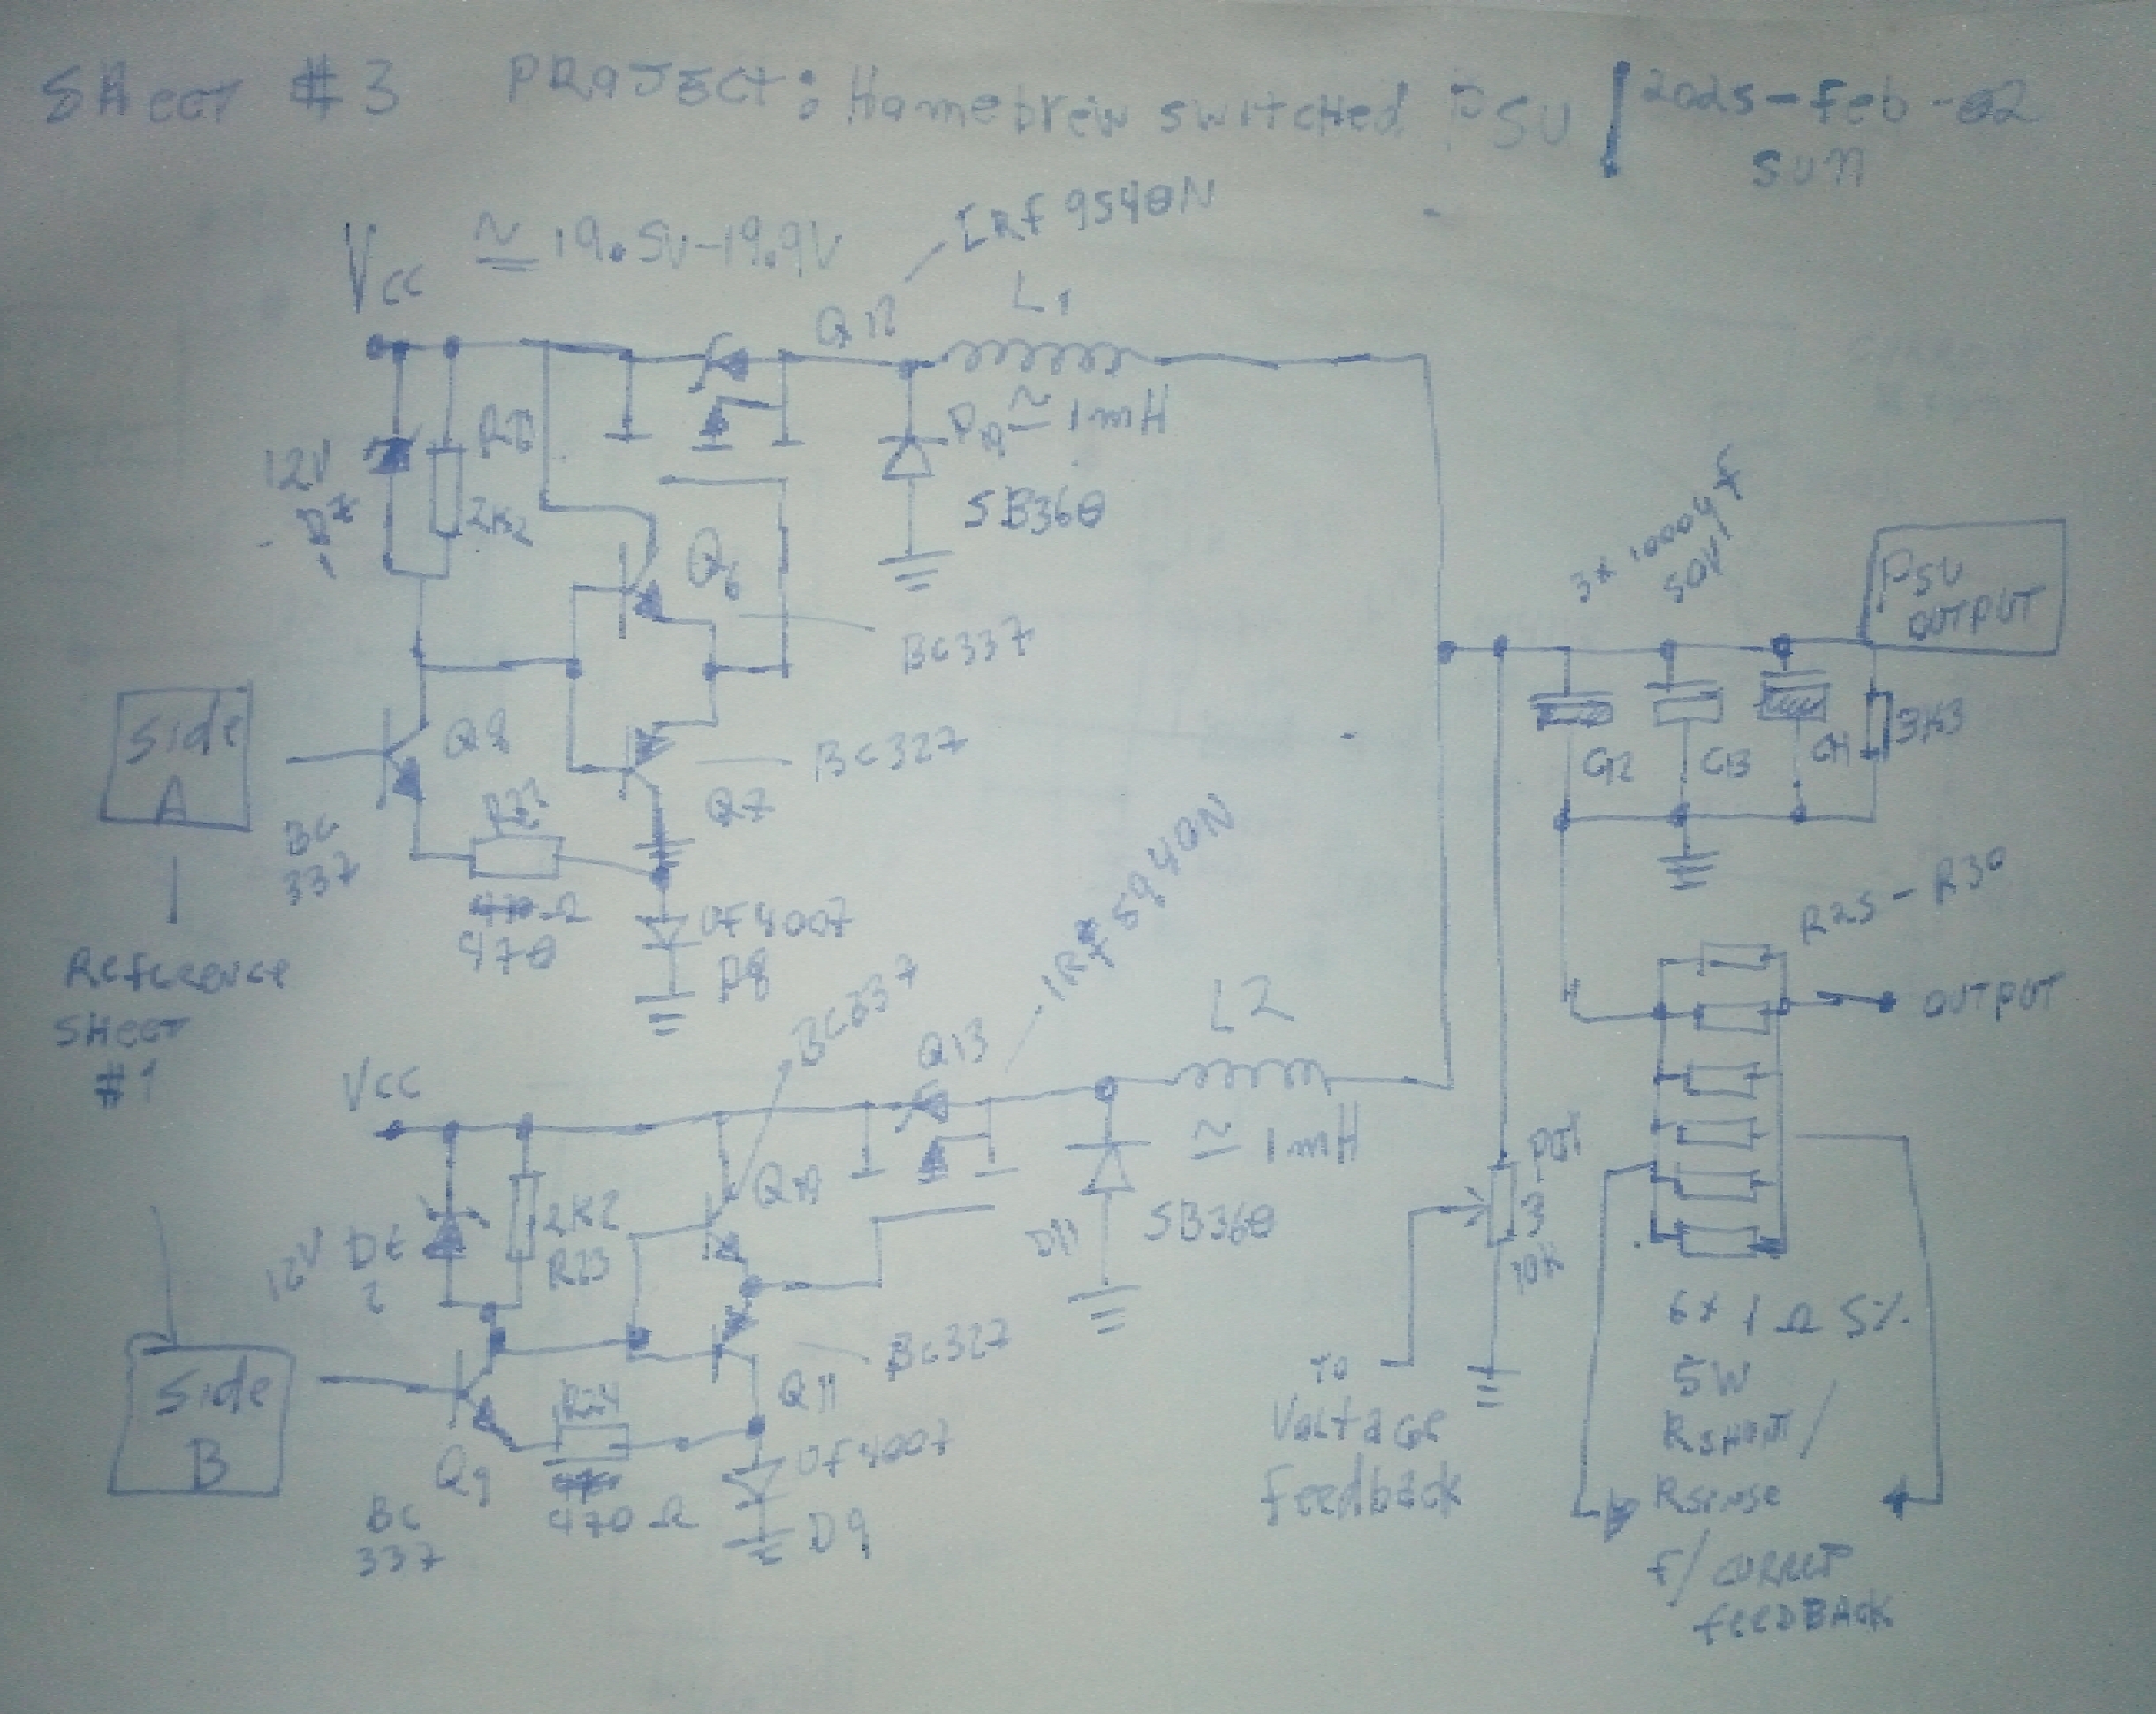 SHeet #3 PROJECT: Homebrew switched PSU | 2025-Feb-02
SUN
Vcc ≅ 19.5V-19.9V
IRF9540N
Q12
L1
≅ 1mH
SB360
12V
DZ
2K2
Q6
BC337
Side
A
Q8
BC
337
BC327
Q7
470
UF4007
D8
Reference
SHeet
#1
3x 1000uF
50V
PSU
OUTPUT
C12
C13
3K3
R25-R30
OUTPUT
IRF5940N
BC337
Vcc
Q13
L2
≅ 1mH
Q10
SB360
D11
12V DZ
2
2K2
R23
BC327
Q11
Side
B
Q9
BC
337
R24
470Ω
UF4007
D9
POT
3
10K
TO
Voltage
Feedback
6x 1Ω 5%
5W
RSHUNT/
RSENSE
F/ CURRET
FEEDBACK